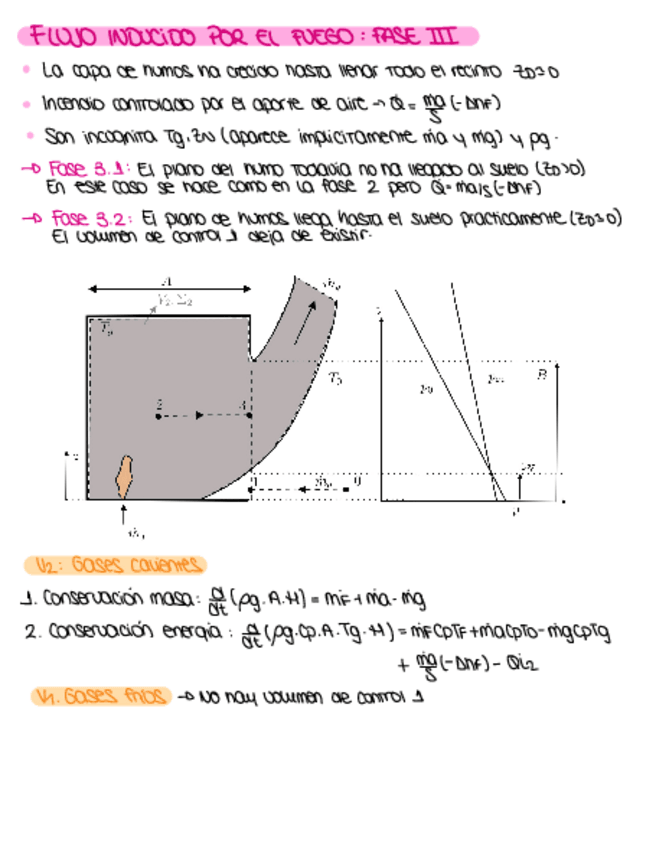 FLUJO INDUCIDO POR EL FUEGO: FASE III
• La capa de humos ha crecido hasta llenar todo el recinto ZD≃0
• Incendio controlado por el aporte de aire → Q̇ = ṁa/S (-ΔhF)
• Son incognita Tg, ZN (aparece implicitamente ṁa y ṁg) y ρg.
→ Fase 3.1: El plano del humo todavia no ha llegado al suelo (ZD>0)
En este caso se hace como en la fase 2 pero Q̇=ṁa/s(-ΔhF)
→ Fase 3.2: El plano de humos llega hasta el suelo practicamente (ZD≃0)
El volumen de control 1 deja de existir.
A
V2, Σ2
B
2
3
1
0
V2: Gases calientes
1. Conservación masa: d/dt (ρg·A·H) = ṁF + ṁa - ṁg
2. Conservación energia: d/dt (ρg·Cp·A·Tg·H) = ṁFCpTF + ṁaCpT0 - ṁgCpTg
+ ṁa/S (-ΔhF) - Q̇L2
V1. Gases frios → No hay volumen de control 1